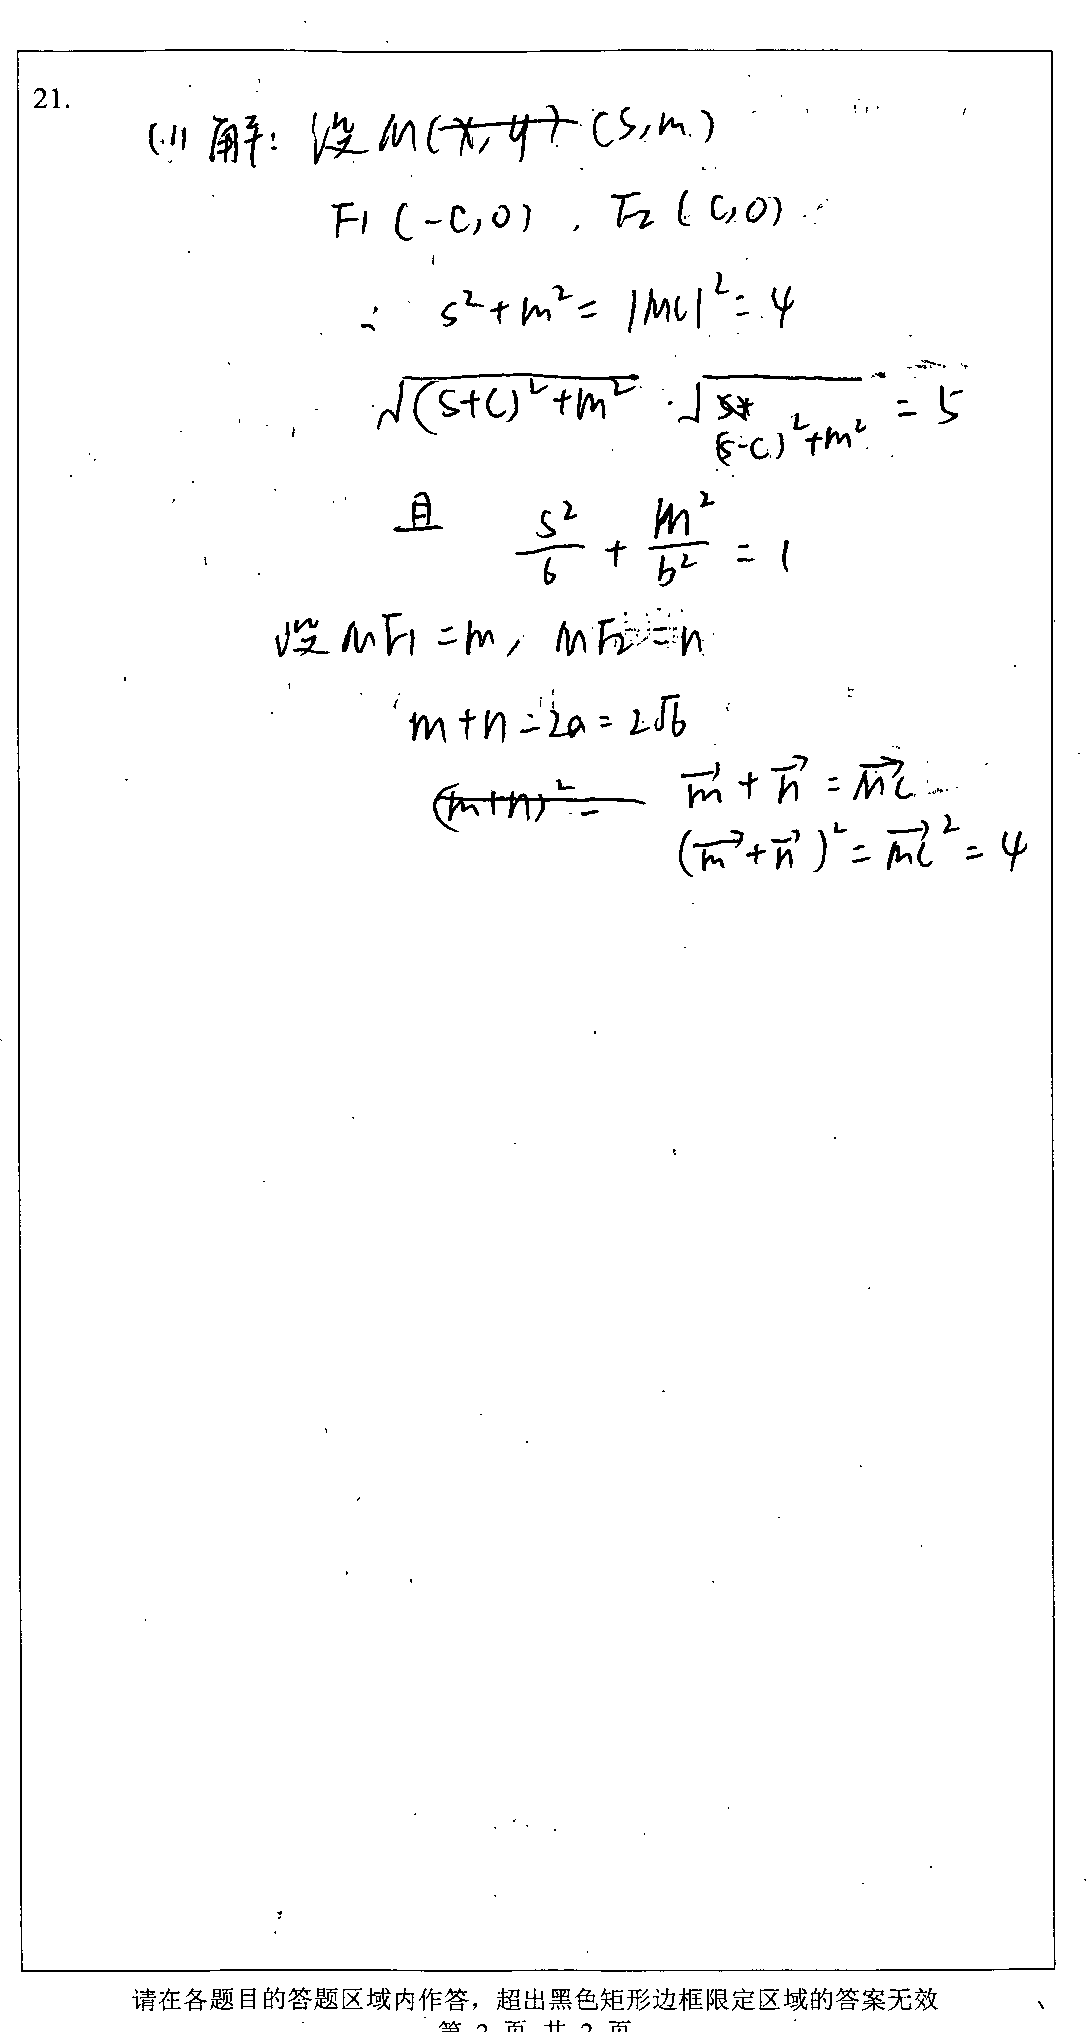 21.
(1) 解: 设 M (x, y) (s, m)
F1 (-c, 0) , F2 (c, 0)
∴ s²+m² = |MC|² = 4
√((s+c)²+m²) · √((s-c)²+m²) = 5
且 s²/6 + m²/b² = 1
设 MF1 = m, MF2 = n
m+n = 2a = 2√6
(m+n)² =
m⃗ + n⃗ = MC⃗
(m⃗ + n⃗)² = MC⃗² = 4
请在各题目的答题区域内作答，超出黑色矩形边框限定区域的答案无效
第 2 页 共 2 页